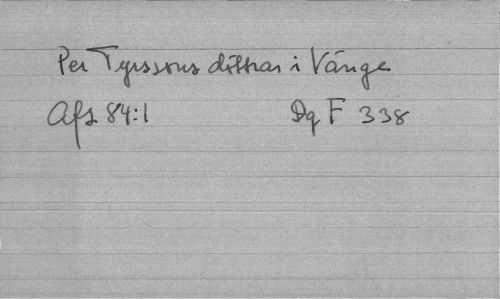 Per Tyrssons döttrar i Vänge
Afs 84:1 Dg F 338